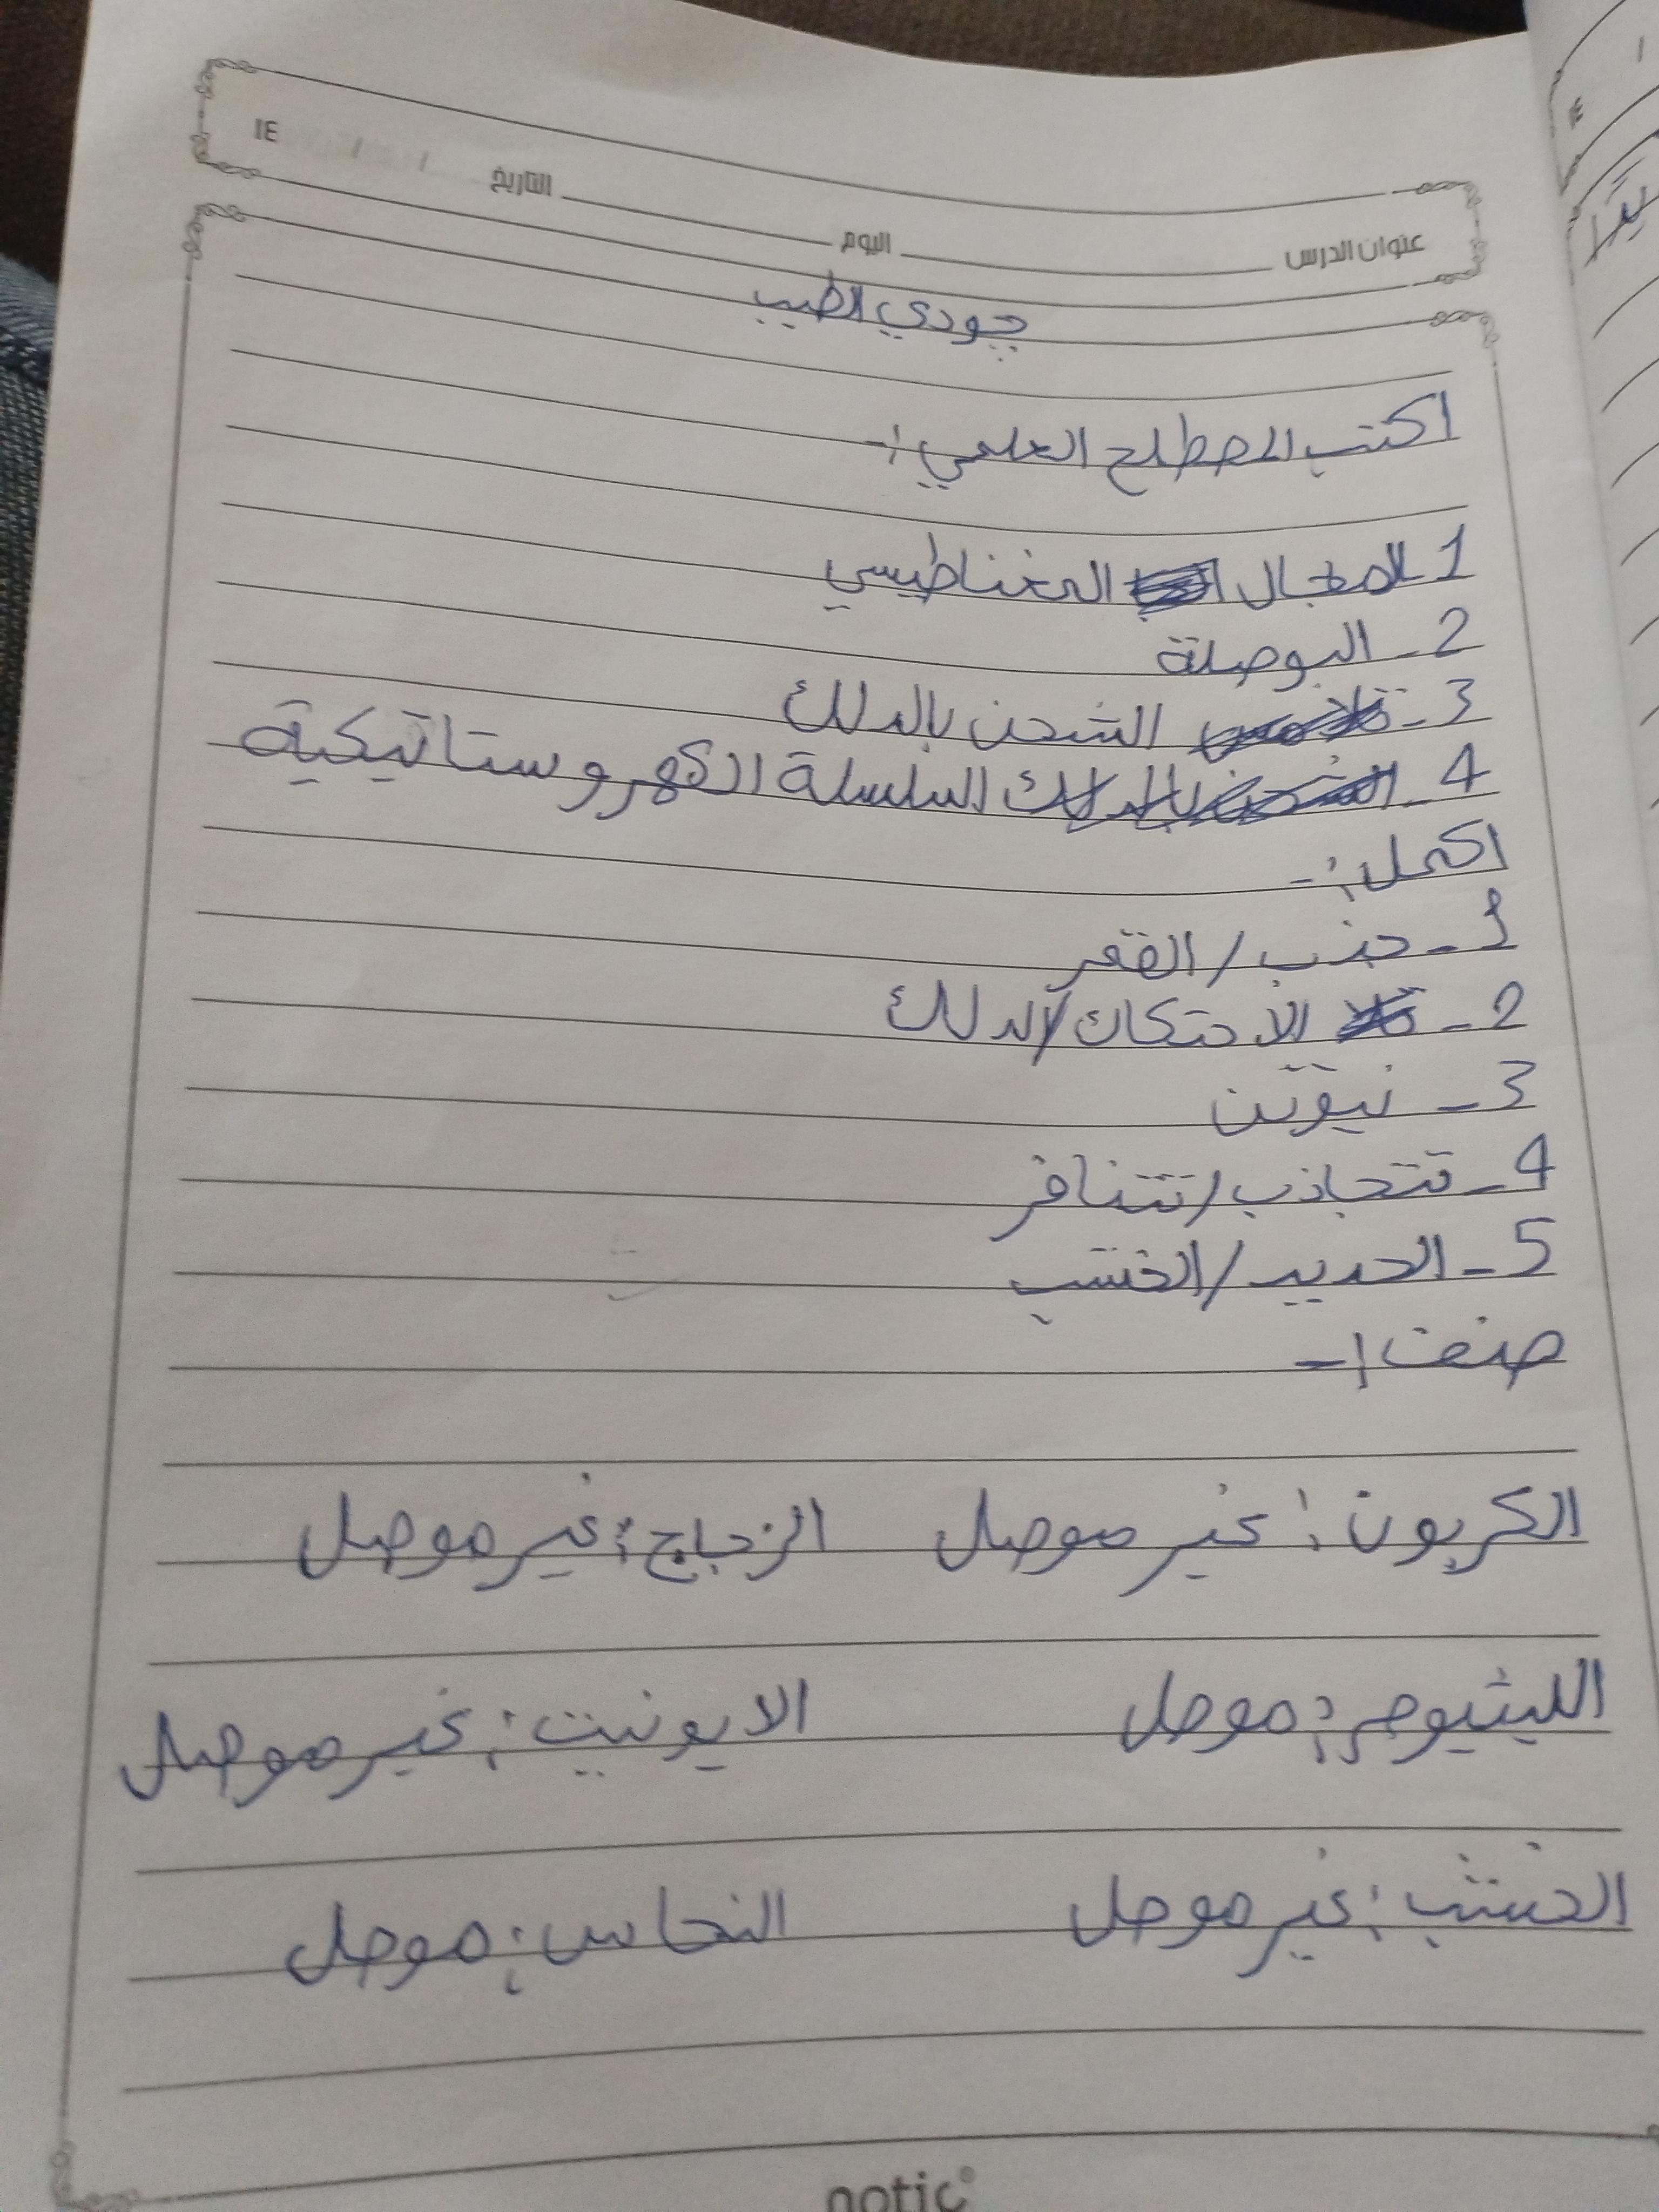 عنوان الدرس اليوم التاريخ / / ١٤
جودي الطيب
اكتب المصطلح العلمي :-
1- المجال المغناطيسي
2- البوصلة
3- الشحن بالدلك
4- السلسلة الكهروستاتيكية
اكمل :-
1- جذب / القفر
2- الاحتكاك / الدلك
3- نيوتن
4- تتجاذب / تتنافر
5- الحديد / الخشب
صنف :-
الكربون : غير موصل الزجاج : غير موصل
الليثيوم : موصل الايونيت : غير موصل
الخشب : غير موصل النحاس : موصل
notic